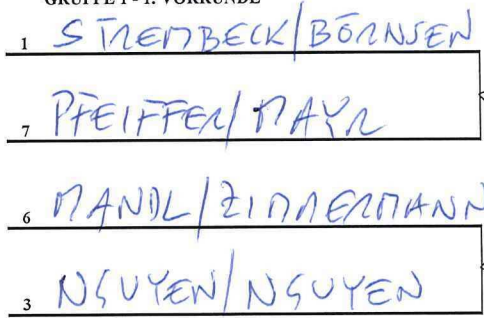 GRUPPE 1 - 1. VORRUNDE
1 STREMBECK/BÖRNSEN
7 PFEIFFER/MAYR
6 MANDL/ZIMMERMANN
3 NGUYEN/NGUYEN